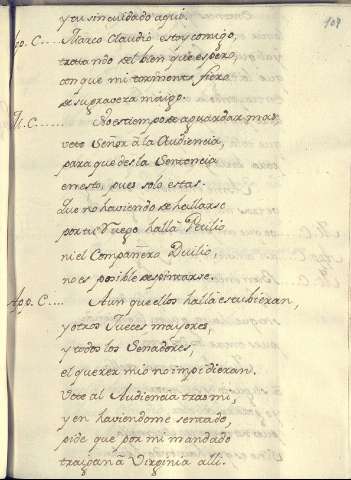 108
y tu sin cuidado aqui.
App. C.... Marco Claudio estoy comigo,
tratando del bien que espero,
con que mi tormento fiero
se supra mi
M. C...... No es tiempo de aguardar mas
vete Señor â la Audiencia,
para que des la Sentencia
en esto, pues solo estas.
Que no haviendo de hallarse
por tu ruego hallâ
ni el Compañero Duilio,
no es posible
App. C.... Aun que ellos hallâ estubieran,
y otros Jueces mayores,
y todos los Senadores,
el querer mio no impidieran.
Vete al Audiencia tras mi,
y en haviendome sentado,
pide que por mi mandado
traigan â Virginia alli.